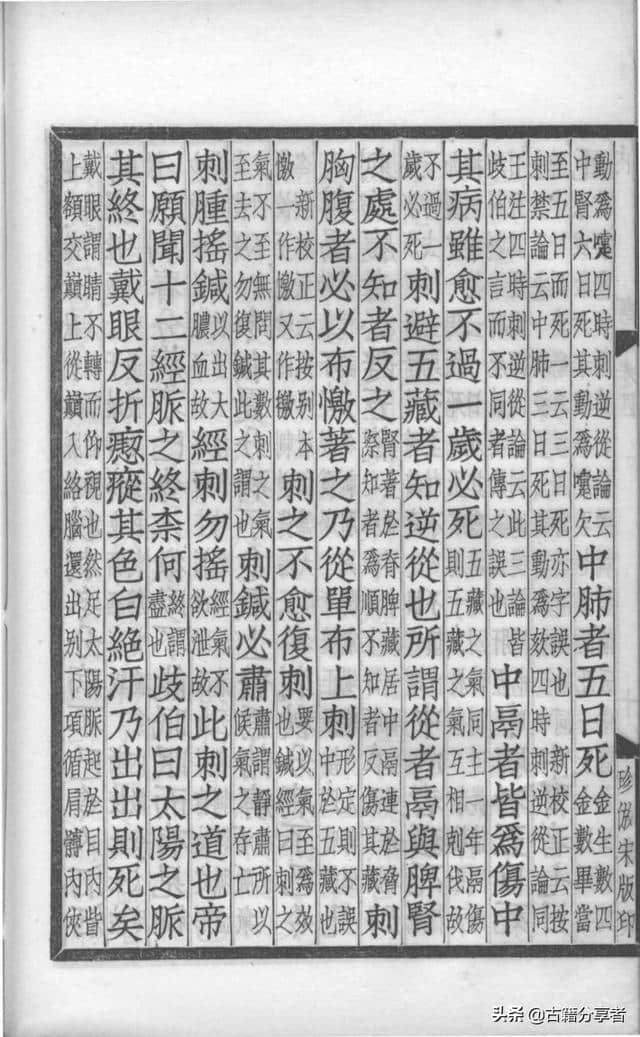 珍倣宋版印
動爲嚏四時刺逆從論云中腎六日死其動爲嚏欠中肺者五日死金生數四金數畢當
至五日而死一云三日死亦字誤也新校正云按刺禁論云中肺三日死其動爲欬四時刺逆從論同
王注四時刺逆從論云此三論皆歧伯之言而不同者傳之誤也中鬲者皆爲傷中
其病雖愈不過一歲必死五藏之氣同主一年鬲傷則五藏之氣互相剋伐故
不過一歲必死刺避五藏者知逆從也所謂從者鬲與脾腎
之處不知者反之腎著於脊脾藏居中鬲連於脅際知者爲順不知者反傷其藏刺
胸腹者必以布憿著之乃從單布上刺形定則不誤中於五藏也
新校正云按別本憿一作憿又作撽刺之不愈復刺要以氣至爲效也鍼經曰刺之
氣不至無問其數刺之氣至去之勿復鍼此之謂也刺鍼必肅肅謂靜肅所以候氣之存亡
刺腫搖鍼以出大膿血故經刺勿搖經氣不欲泄故此刺之道也帝
曰願聞十二經脈之終柰何終謂盡也歧伯曰太陽之脈
其終也戴眼反折瘛瘲其色白絕汗乃出出則死矣
戴眼謂睛不轉而仰視也然足太陽脈起於目內眥上額交巔上從巔入絡腦還出別下項循肩髆內俠
头条@古籍分享者